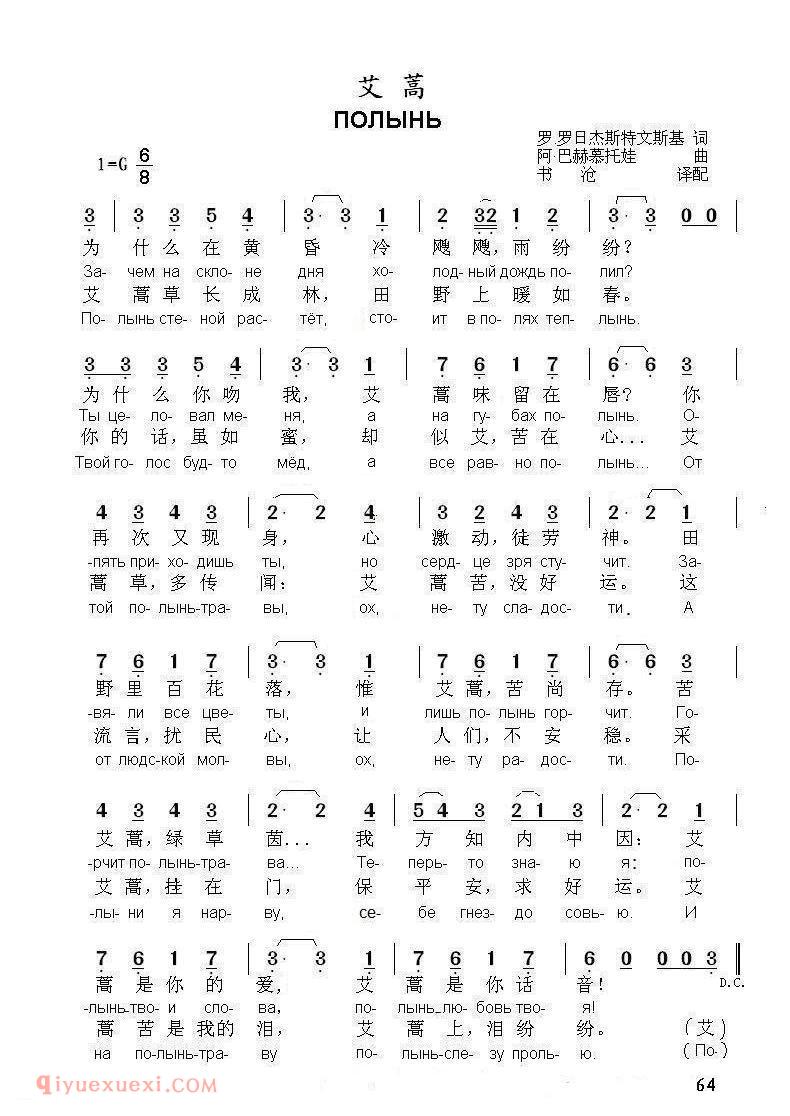 艾 蒿
ПОЛЫНЬ
罗·罗日杰斯特文斯基 词
阿·巴赫慕托娃 曲
书 沧 译配
1=G 6/8
3 | 3 3 5 4 | 3· 3 1 | 2 32 1 2 | 3· 3 0 0 |
为 什 么 在 黄 昏 冷 飕 飕, 雨 纷 纷?
За- чем на скло- не дня хо- лод- ный дождь по- лил?
艾 蒿 草 长 成 林, 田 野 上 暖 如 春。
По- лынь сте- ной рас- тёт, сто- ит в по- лях теп- лынь.
3 3 3 5 4 | 3· 3 1 | 7 6 1 7 | 6· 6 3 |
为 什 么 你 吻 我, 艾 蒿 味 留 在 唇? 你
Ты це- ло- вал ме- ня, а на гу- бах по- лынь. О-
你 的 话, 虽 如 蜜, 却 似 艾, 苦 在 心... 艾
Твой го- лос буд- то мёд, а все рав- но по- лынь... От
4 3 4 3 | 2· 2 4 | 3 2 4 3 | 2· 2 1 |
再 次 又 现 身, 心 激 动, 徒 劳 神。 田
-пять при- хо- дишь ты, но серд- це зря сту- чит. За-
蒿 草, 多 传 闻: 艾 蒿 苦, 没 好 运。 这
той по- лынь-тра- вы, ох, не- ту сла- дос- ти. А
7 6 1 7 | 3· 3 1 | 7 6 1 7 | 6· 6 3 |
野 里 百 花 落, 惟 艾 蒿, 苦 尚 存。 苦
-вя- ли все цве- ты, и лишь по- лынь гор- чит. Го-
流 言, 扰 民 心, 让 人 们, 不 安 稳。 采
от людс- кой мол- вы, ох, не- ту ра- дос- ти. По-
4 3 4 3 | 2· 2 4 | 5 4 3 2 1 3 | 2· 2 1 |
艾 蒿, 绿 草 茵... 我 方 知 内 中 因: 艾
-рчит по- лынь-тра- ва... Те- перь- то зна- ю я: по-
艾 蒿, 挂 在 门, 保 平 安, 求 好 运。 艾
-лы- ни я нар- ву, се- бе гнез- до совь- ю. И
7 6 1 7 | 3· 3 1 | 7 6 1 7 | 6 0 0 0 3 ‖
D.C.
蒿 是 你 的 爱, 艾 蒿 是 你 话 音!
-лынь-тво- и сло- ва, по- лынь-лю- бовь тво- я!
蒿 苦 是 我 的 泪, 艾 蒿 上, 泪 纷 纷。 (艾)
на по- лынь-тра- ву по- лынь-сле- зу проль- ю. (По-)
qiyuexuexi.com
64